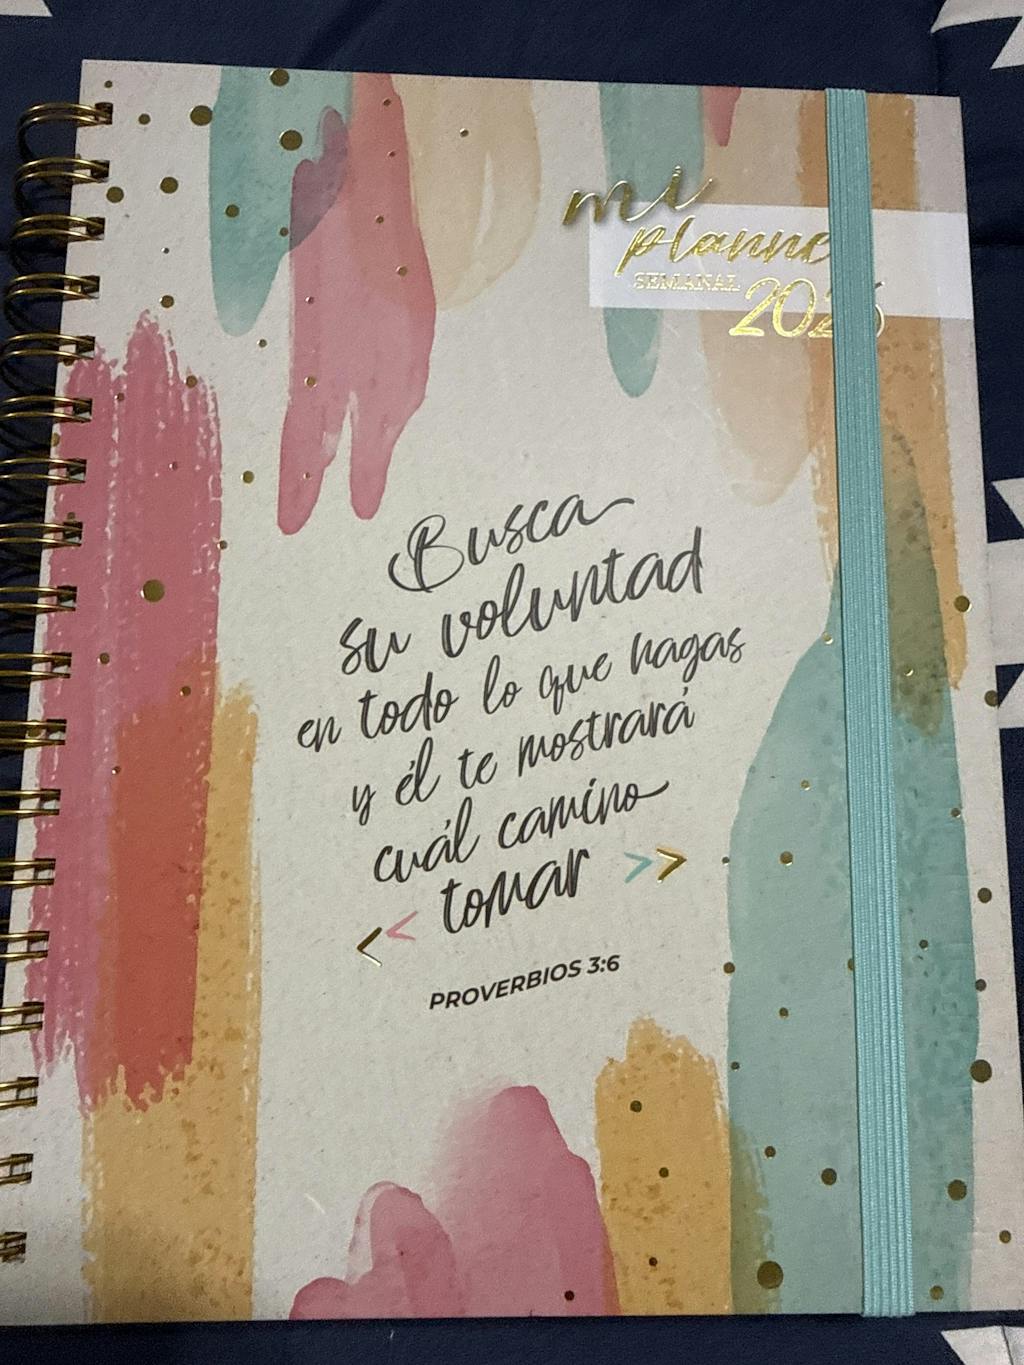 mi
planne
SEMANAL
202
Busca
su voluntad
en todo lo que hagas
y él te mostrará
cuál camino
tomar
PROVERBIOS 3:6